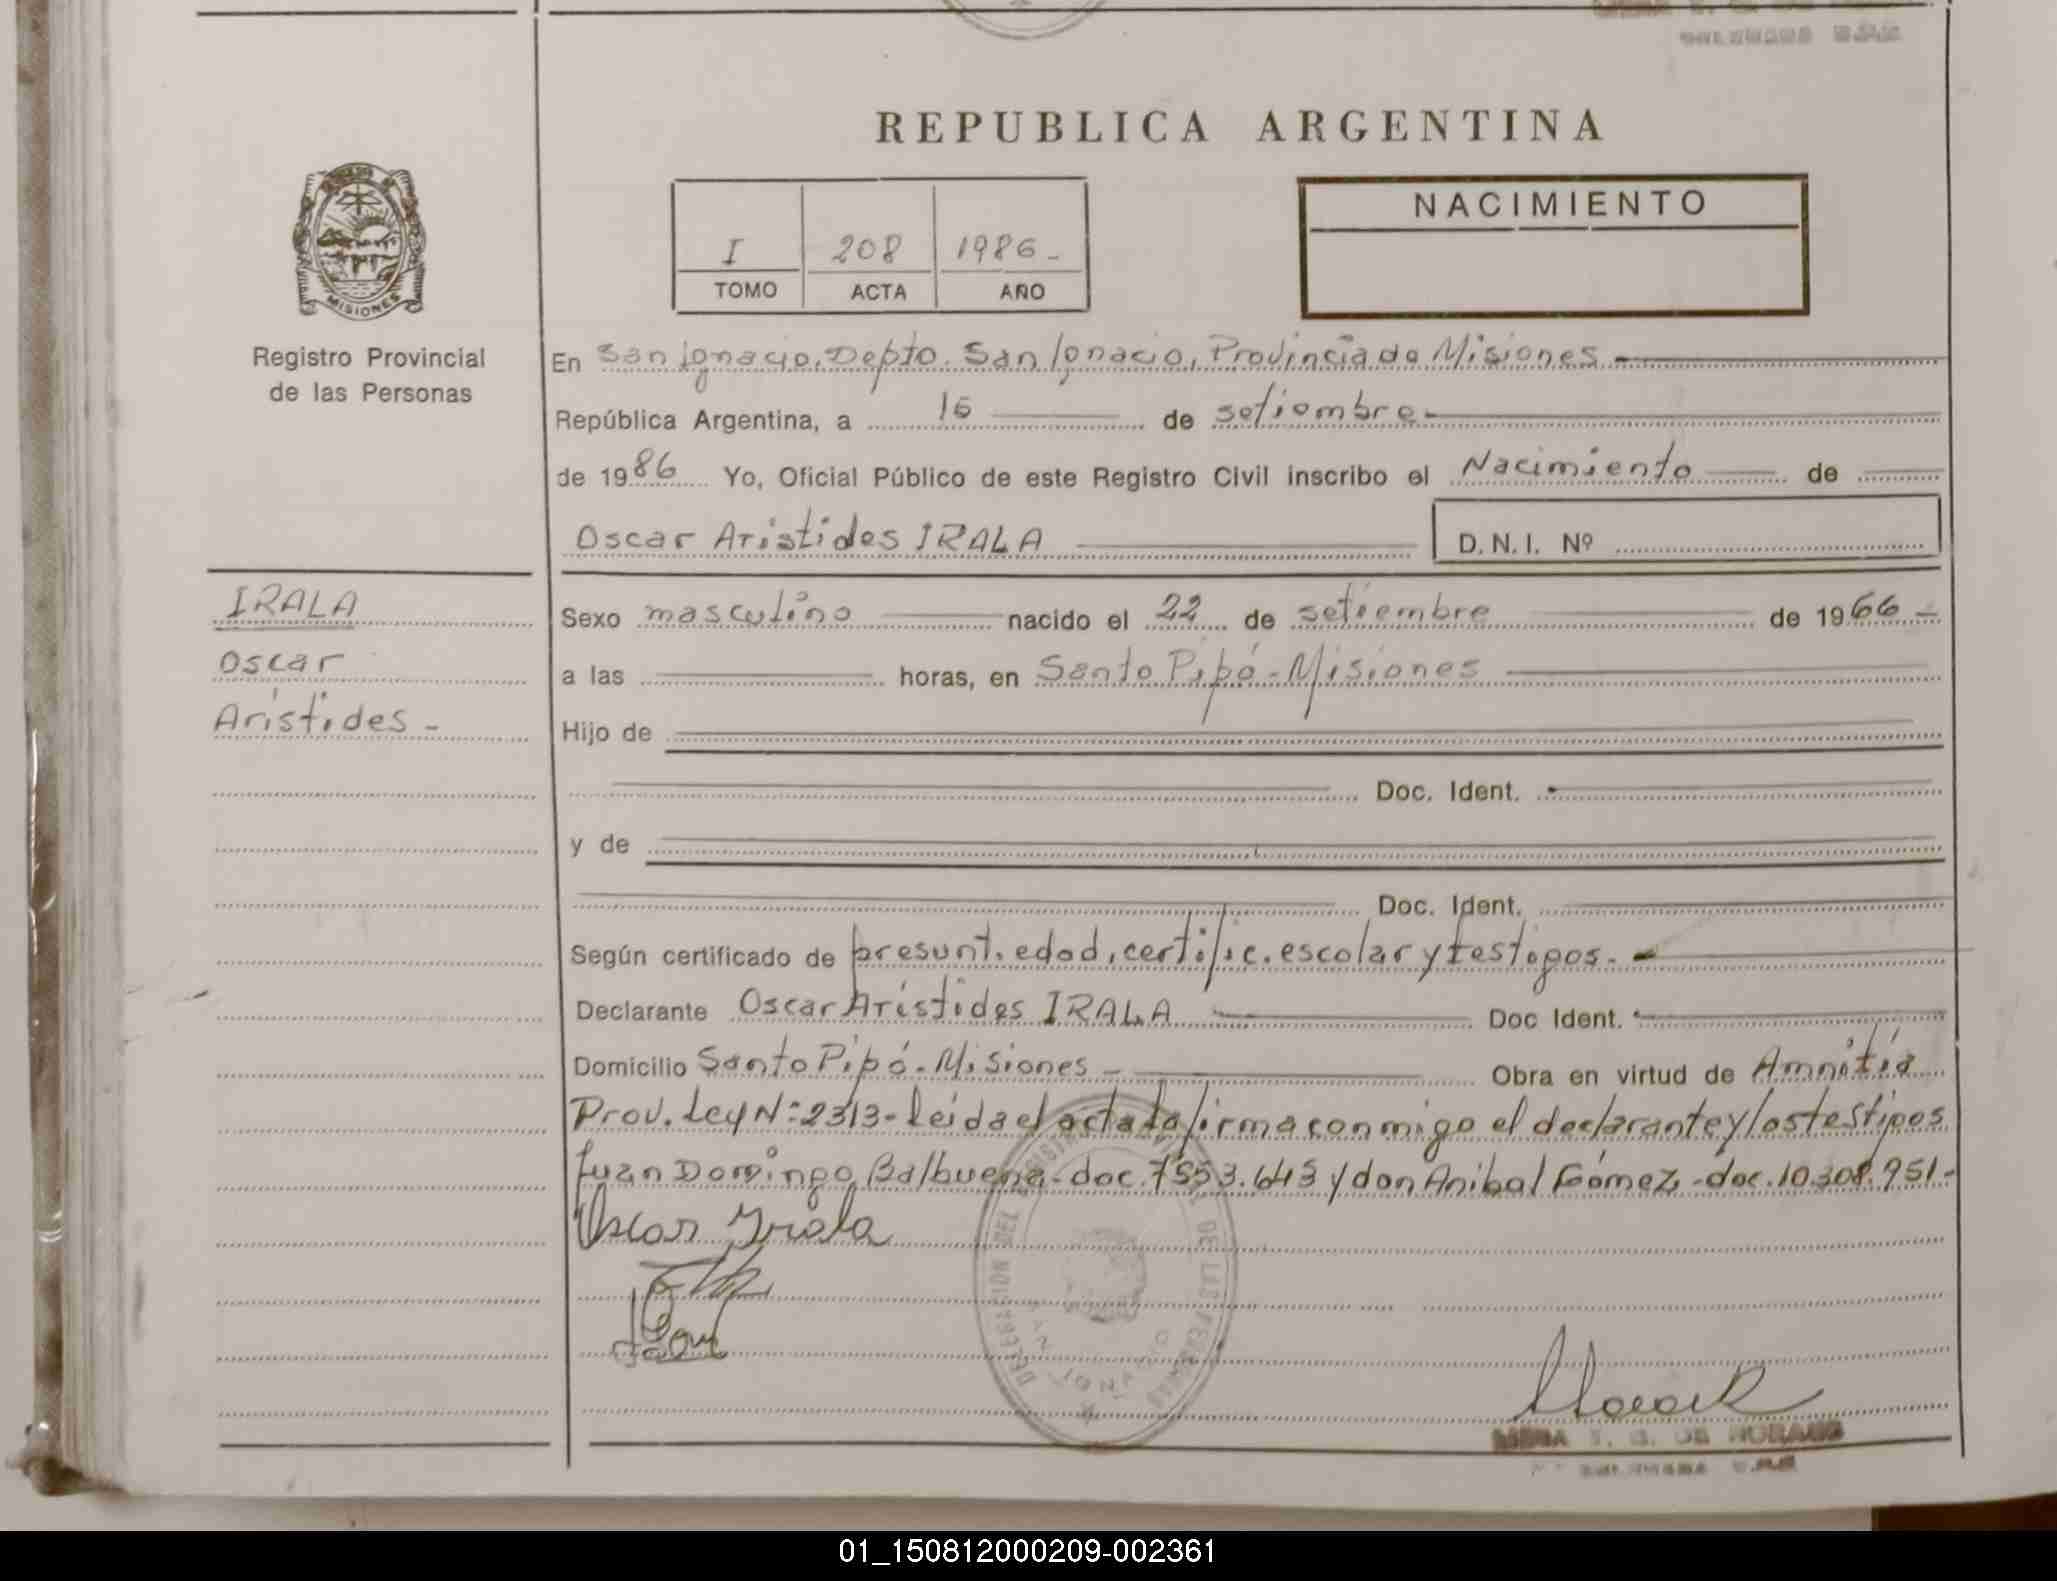 REPUBLICA ARGENTINA
NACIMIENTO
I 208 1986-
TOMO ACTA AÑO
MISIONES
Registro Provincial
de las Personas
En San Ignacio, Depto. San Ignacio, Provincia de Misiones
República Argentina, a 16 de setiembre
de 1986 Yo, Oficial Público de este Registro Civil inscribo el Nacimiento de
Oscar Aristides IRALA D.N.I. Nº
IRALA
Oscar
Aristides-
Sexo masculino nacido el 22 de setiembre de 1966-
a las horas, en Santo Pipó-Misiones
Hijo de
Doc. Ident.
y de
Doc. Ident.
Según certificado de presunt. edad, certific. escolar y testigos.-
Declarante Oscar Aristides IRALA Doc Ident.
Domicilio Santo Pipó-Misiones- Obra en virtud de Amnitía
Prov. Ley Nº 2313-Leida el acta la firma conmigo el declarante y los testigos
Juan Domingo Balbuena-doc. 7553.643 y don Anibal Gómez-doc. 10.308.951-
Oscar Irala
DELEGACION DEL DE LAS PERSONAS
SAN IGNACIO
01_150812000209-002361